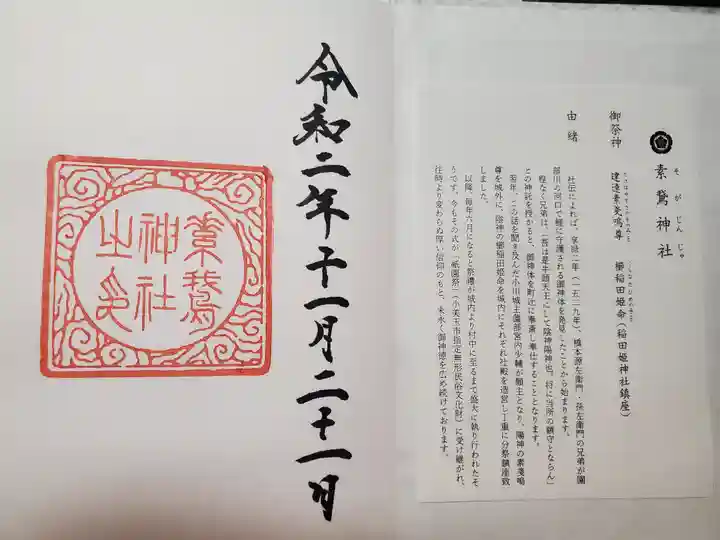 素鵞神社
そがじんじゃ
御祭神
建速素戔嗚尊
たけはやすさのおのみこと
櫛稲田姫命（稲田姫神社鎮座）
くしなだひめのみこと
由緒
社伝によれば、享禄二年（一五二九年）、橋本源左衛門・孫左衛門の兄弟が園
部川の河口で亀に守護される御神体を発見したことから始まります。
程なく兄弟は、「吾は是牛頭天王にして陰神陽神也。将に当所の鎮守とならん」
との神託を授かると、御神体を町辻に奉斎し奉仕することとなります。
若年、この話を聞き及んだ小川城主薗部宮内少輔が願主となり、陽神の素戔嗚
尊を城外に、陰神の櫛稲田姫命を城内にそれぞれ社殿を造営し丁重に分祭鎮座致
しました。
以降、毎年六月になると祭禮が城内より村中に至るまで盛大に執り行われたそ
うです。今もその式が「祇園祭」（小美玉市指定無形民俗文化財）に受け継がれ、
往時より変わらぬ厚い信仰のもと、末永く御神徳を広め続けております。
令和二年十一月二十一日
素鵞
神社
之印